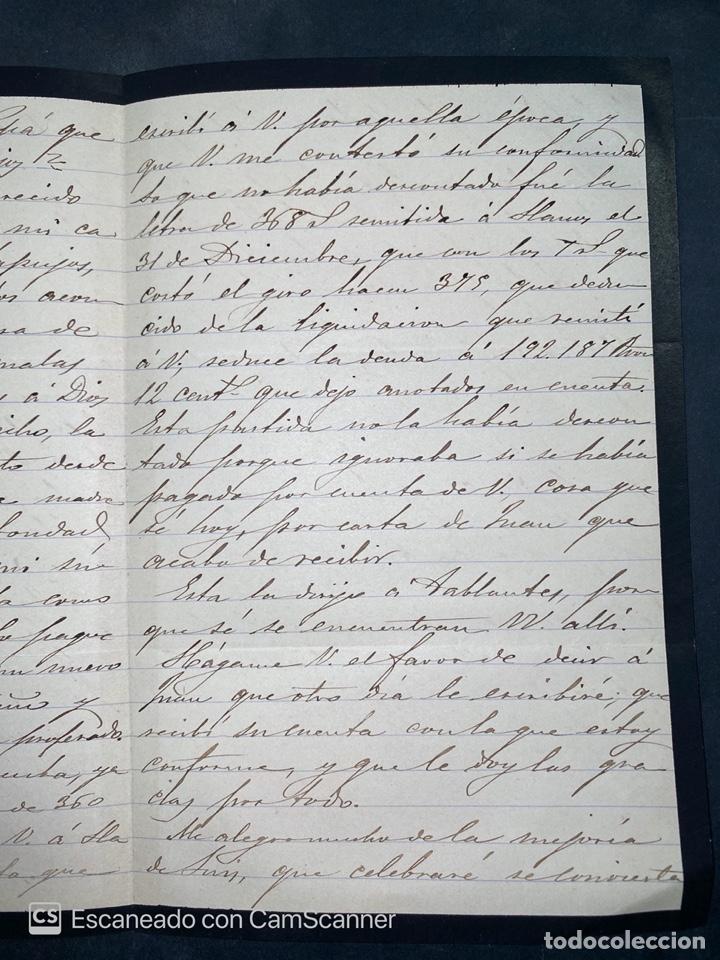 que
recido
mi ca
de
á Dios
la
desde
madre
bondad
como
pague
nuevo
y
profesado.
ya
de 360
V. á Lla
la que
escribí á V. por aquella época, y
que V. me contestó su conformidad
Lo que no había descontado fué la
letra de 368 rs. remitida á Llanes el
31 de Diciembre, que con los 7 rs. que
costó el giro hacen 375, que dedu
cido de la liquidacion que remití
á V, reduce la deuda á 192.187
12 cents. que dejo anotados en cuenta.
Esta partida no la había descon
tado porque ignoraba si se había
pagado por cuenta de V., cosa que
sé hoy, por carta de Juan que
acabo de recibir.
Esta la dirijo á Tablantes, por
que sé se encuentran VV. allí.
Hágame V. el favor de decir á
Juan que otro día le escribiré; que
recibí su cuenta con la que estoy
conforme, y que le doy las gra
cias por todo.
Me alegro mucho de la mejoría
de Luis, que celebraré se convierta
CS Escaneado con CamScanner
todocoleccion